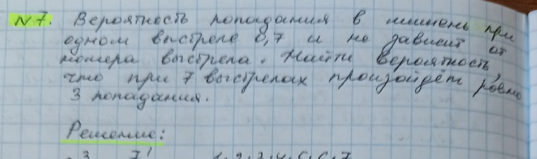 N 7. Вероятность попадания в мишень при
одном выстреле 0,7 и не зависит от
номера выстрела. Найти вероятность,
что при 7 выстрелах произойдёт ровно
3 попадания.
Решение:
3 7! 1·2·3·4·5·6·7